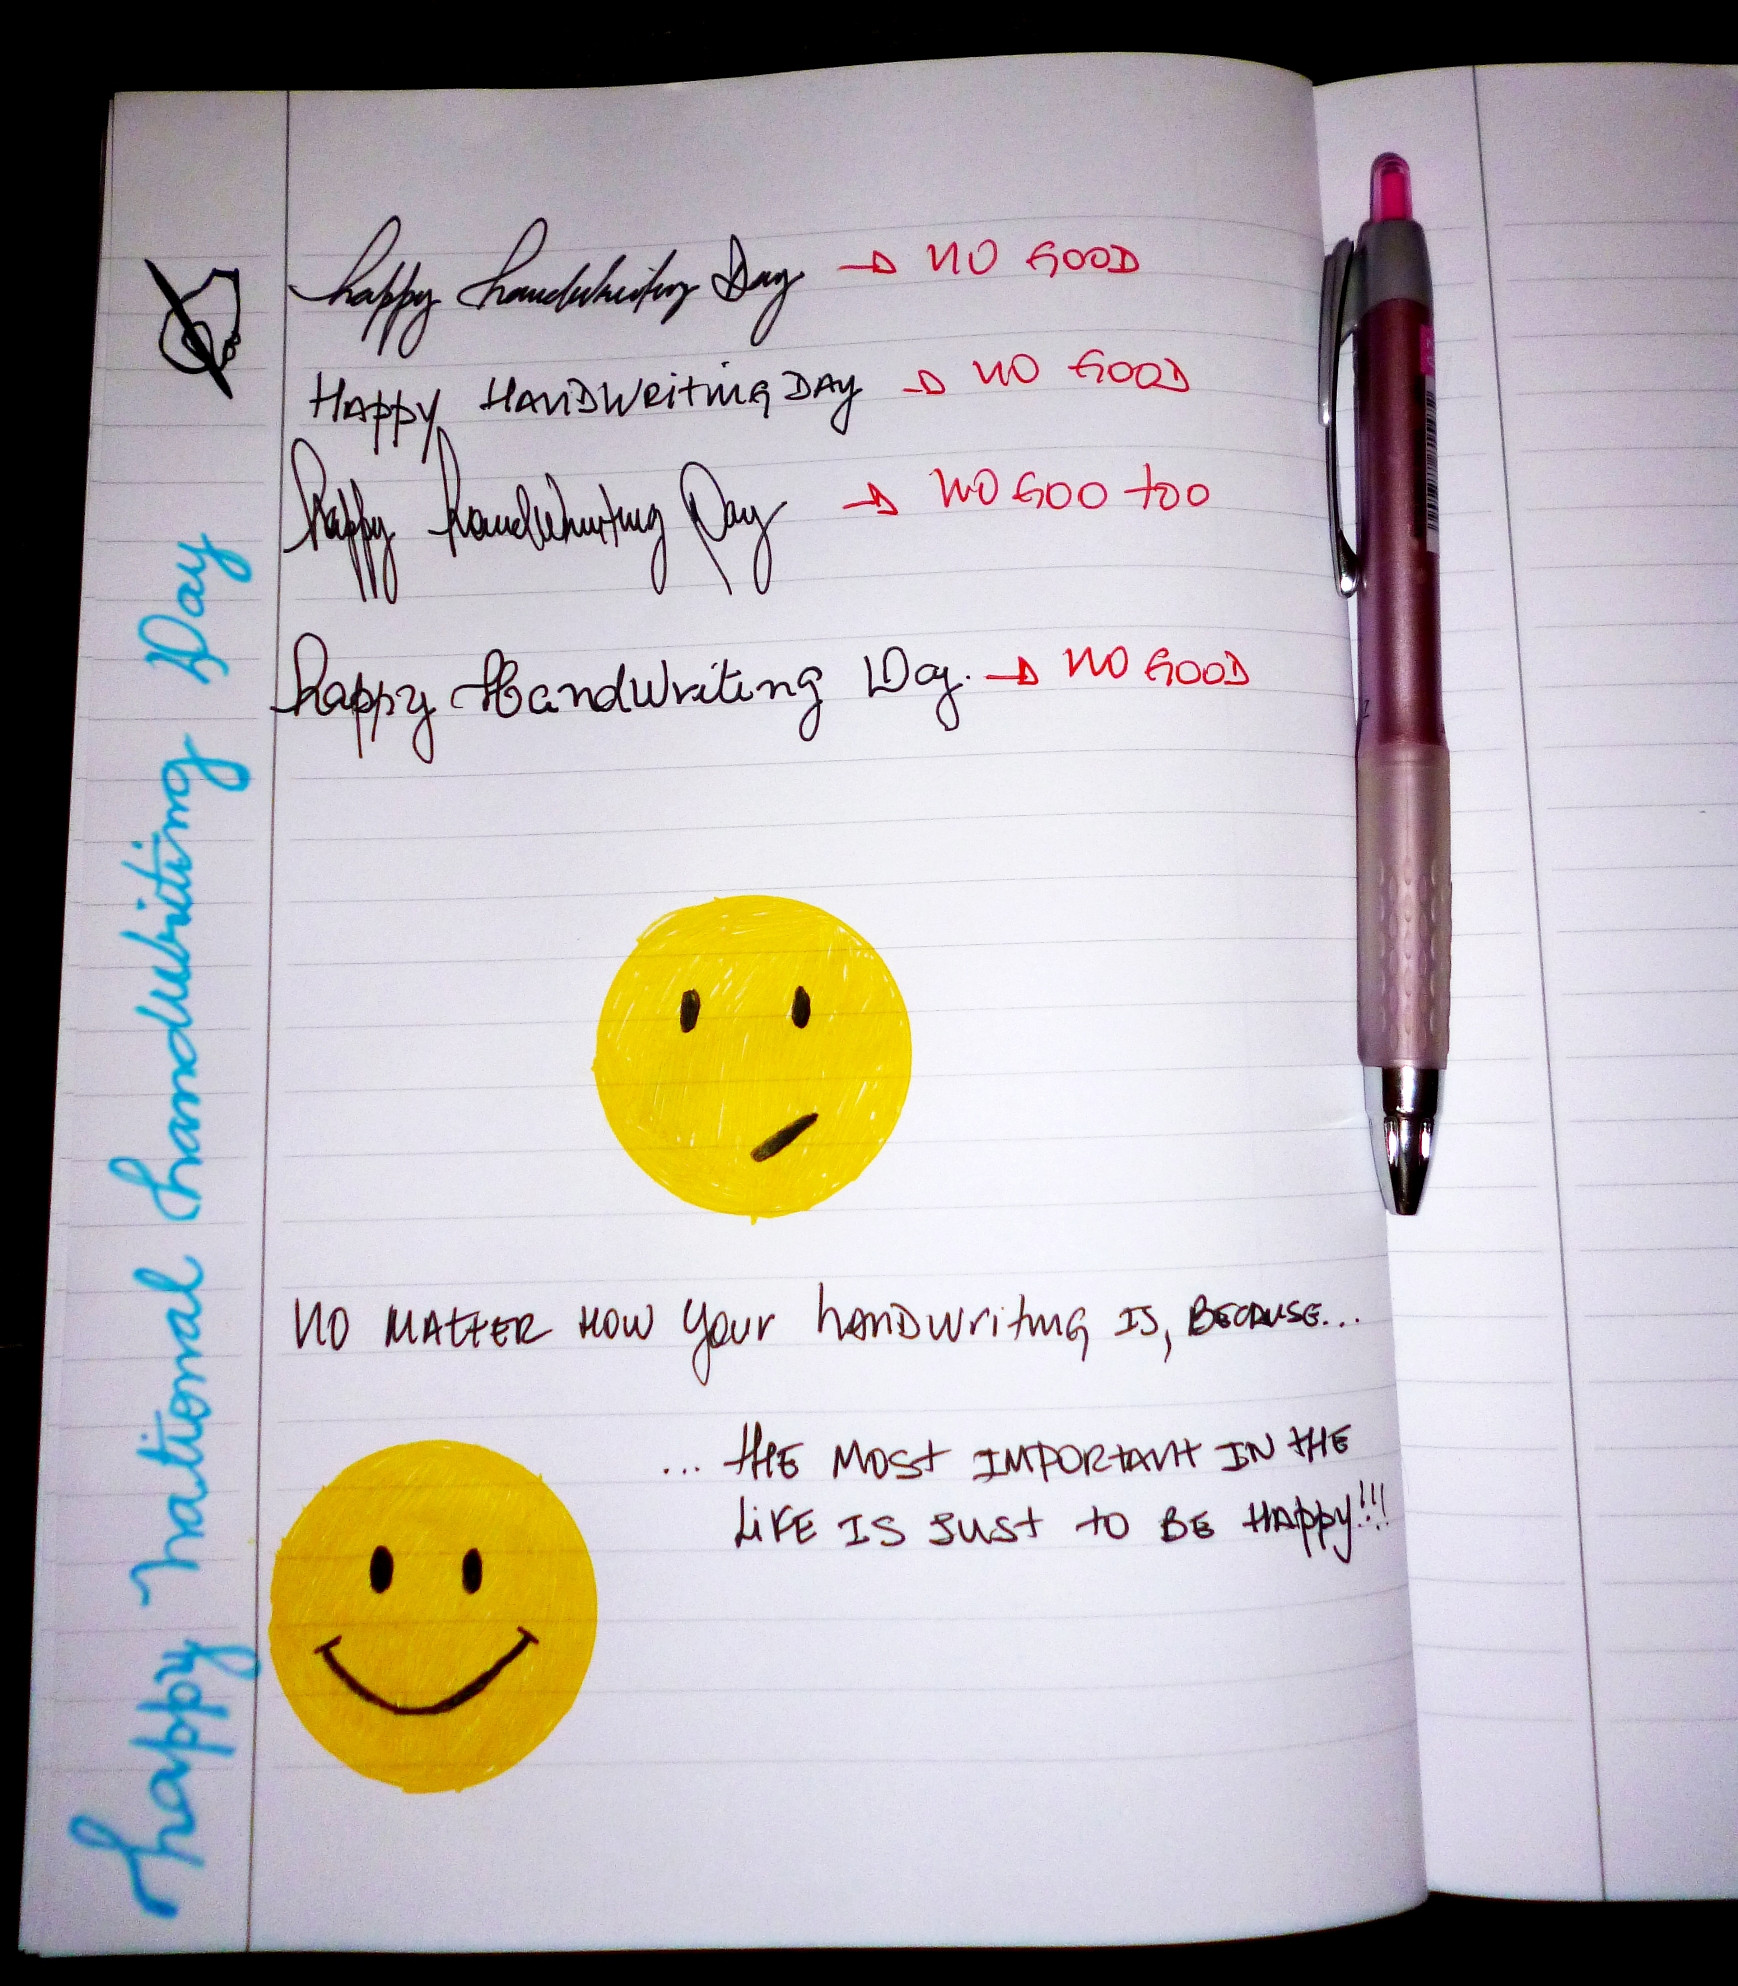 happy handwriting Day → NO GOOD
HAPPY HANDWRITING DAY → NO GOOD
happy handwriting Day → NO GOO TOO
happy Handwriting Day. → NO GOOD
NO MATTER HOW your handwriting IS, BECAUSE...
... THE MOST IMPORTANT IN THE
LIKE IS JUST TO BE HAPPY!!!
happy national handwriting Day